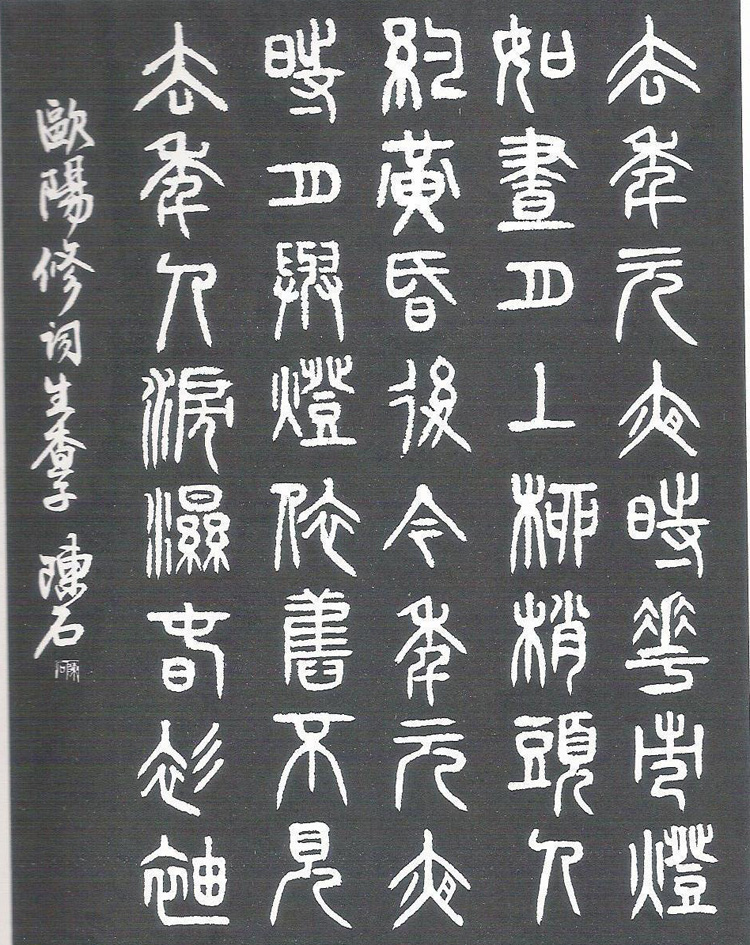 去年元夜時華市燈
如晝月上柳梢頭人
約黃昏後今年元夜
時月與燈依舊不見
去年人淚濕春衫袖
歐陽修詞生查子 陳石